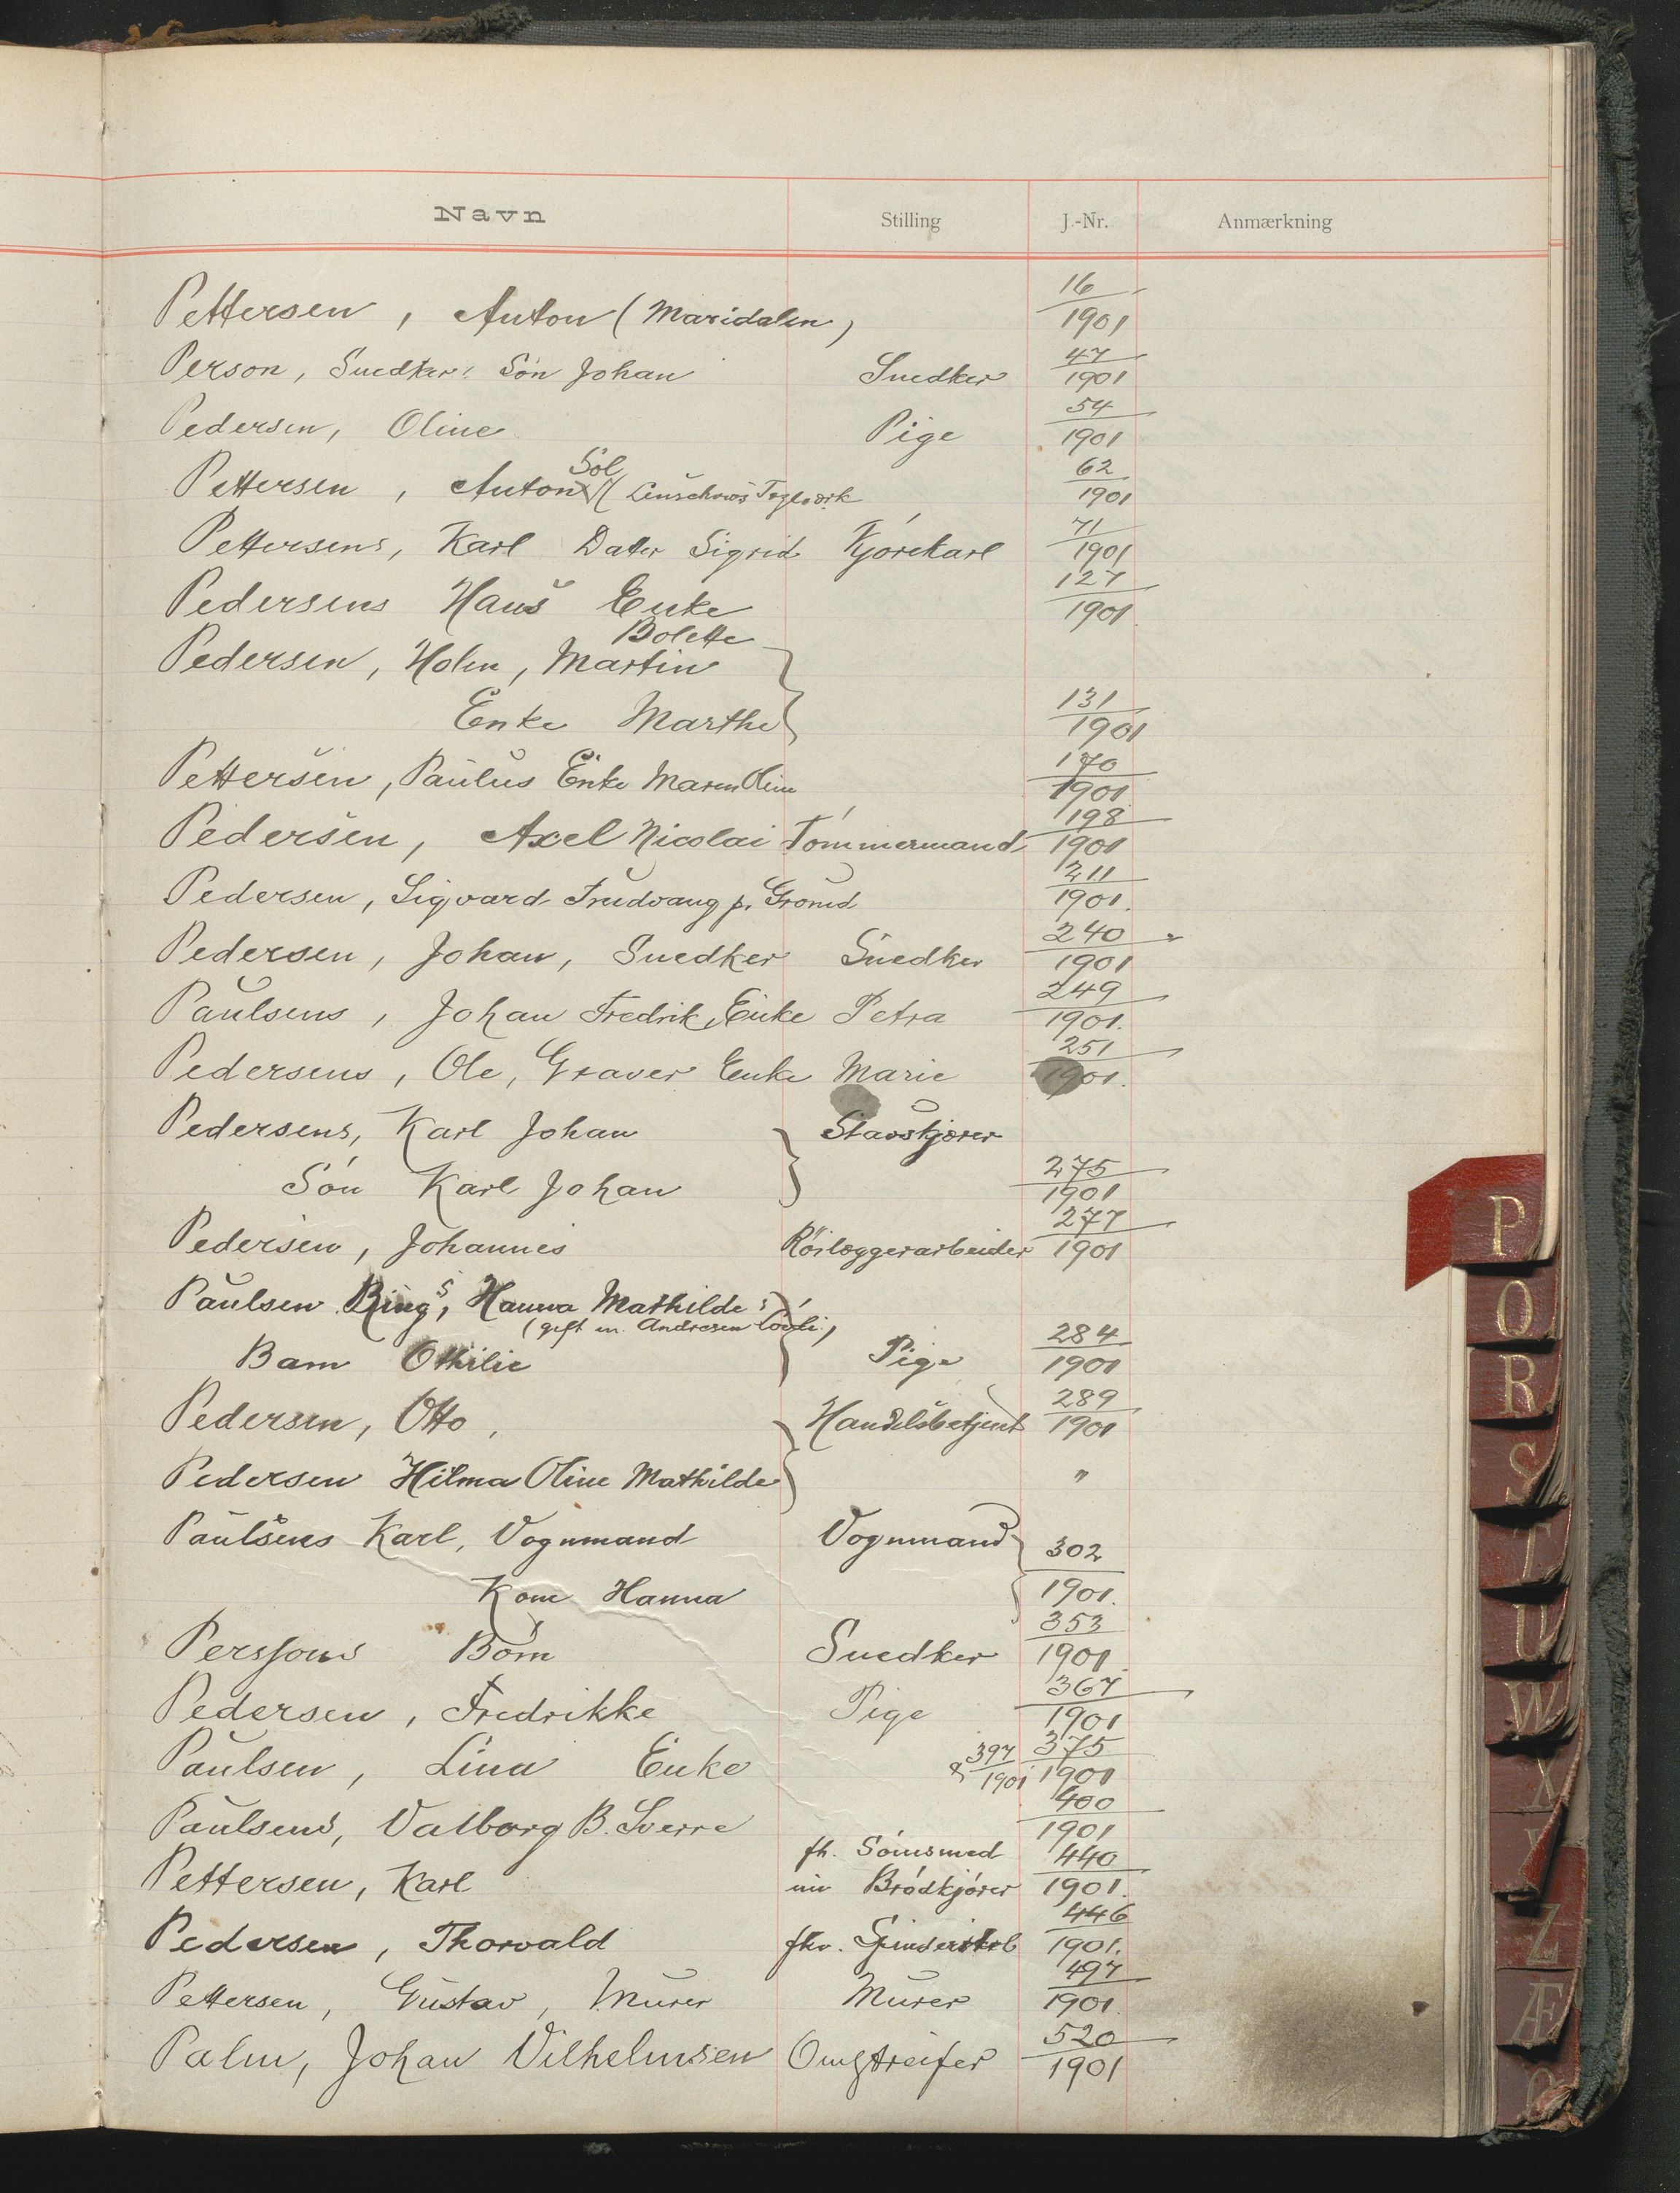 Navn Stilling J.-Nr. Anmærkning
Pettersen, Anton (Maridalen) 16/1901
Person, Snedkers Søn Johan Snedker 47/1901
Pedersen, Oline Pige 54/1901
Pettersen, Anton Sol ( Teglværk 62/1901
Pettersens, Karl Datter Sigrid Kjørekarl 71/1901
Pedersens Hans Enke 127/1901
Bolette
Pedersen, Holm, Martin
Enke Marthe 131/1901
Pettersen, Paulus Enke Maren Oline 170/1901
Pedersen, Axel Nicolai Tømmermand 198/1901
Pedersen, Sigvard Trudvang p. Grorud 211/1901.
Pedersen, Johan, Snedker Snedker 240/1901
Paulsens, Johan Fredrik, Enke Petra 249/1901.
Pedersens, Ole, Graver Enke Marie 251/1901.
Pedersens, Karl Johan Slavskjører
Søn Karl Johan 275/1901
Pedersen, Johannes Rørlæggerarbeider 277/1901
Paulsen Ring's, Hanna Mathilde's
(gift m. Andresen )
Barn Othilie Pige 284/1901
Pedersen, Otto, Handelsbetjent 289/1901
Pedersen Hilma Oline Mathilde "
Paulsens Karl, Vognmand Vognmand 302
Kone Hanna 1901.
Perssons Børn Snedker 353/1901.
Pedersen, Fredrikke Pige 367/1901
Paulsen, Lina Enke & 397/1901 375/1901
Paulsens, Valborg B. Sverre 400/1901
fh. Sømsmed
Pettersen, Karl nu Brødkjører 440/1901.
Pedersen, Thorvald fhv. 446/1901.
Pettersen, Gustav, Murer Murer 497/1901.
Palm, Johan Vilhelmsen Omstreifer 520/1901
P
Q
R
S
T
U
W
X
Z
Æ
Ø